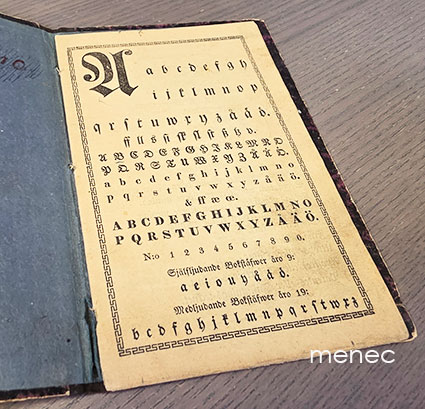 A a b c d e f g h
i j k l m n o p
q r s t u w x y z å ä ö.
A B C D E F G H I J K L M N O
P Q R S T U W X Y Z Å Ä Ö.
a b c d e f g h i j k l m n o
p q r s t u v w x y z å ä ö.
& ff æ œ.
A B C D E F G H I J K L M N O
P Q R S T U V W X Y Z Å Ä Ö.
N:o 1 2 3 4 5 6 7 8 9 0.
Sjelfljudande Bokstäfwer äro 9:
a e i o u y å ä ö.
Medljudande Bokstäfwer äro 19:
b c d f g h j k l m n p q r s t w x z
menec